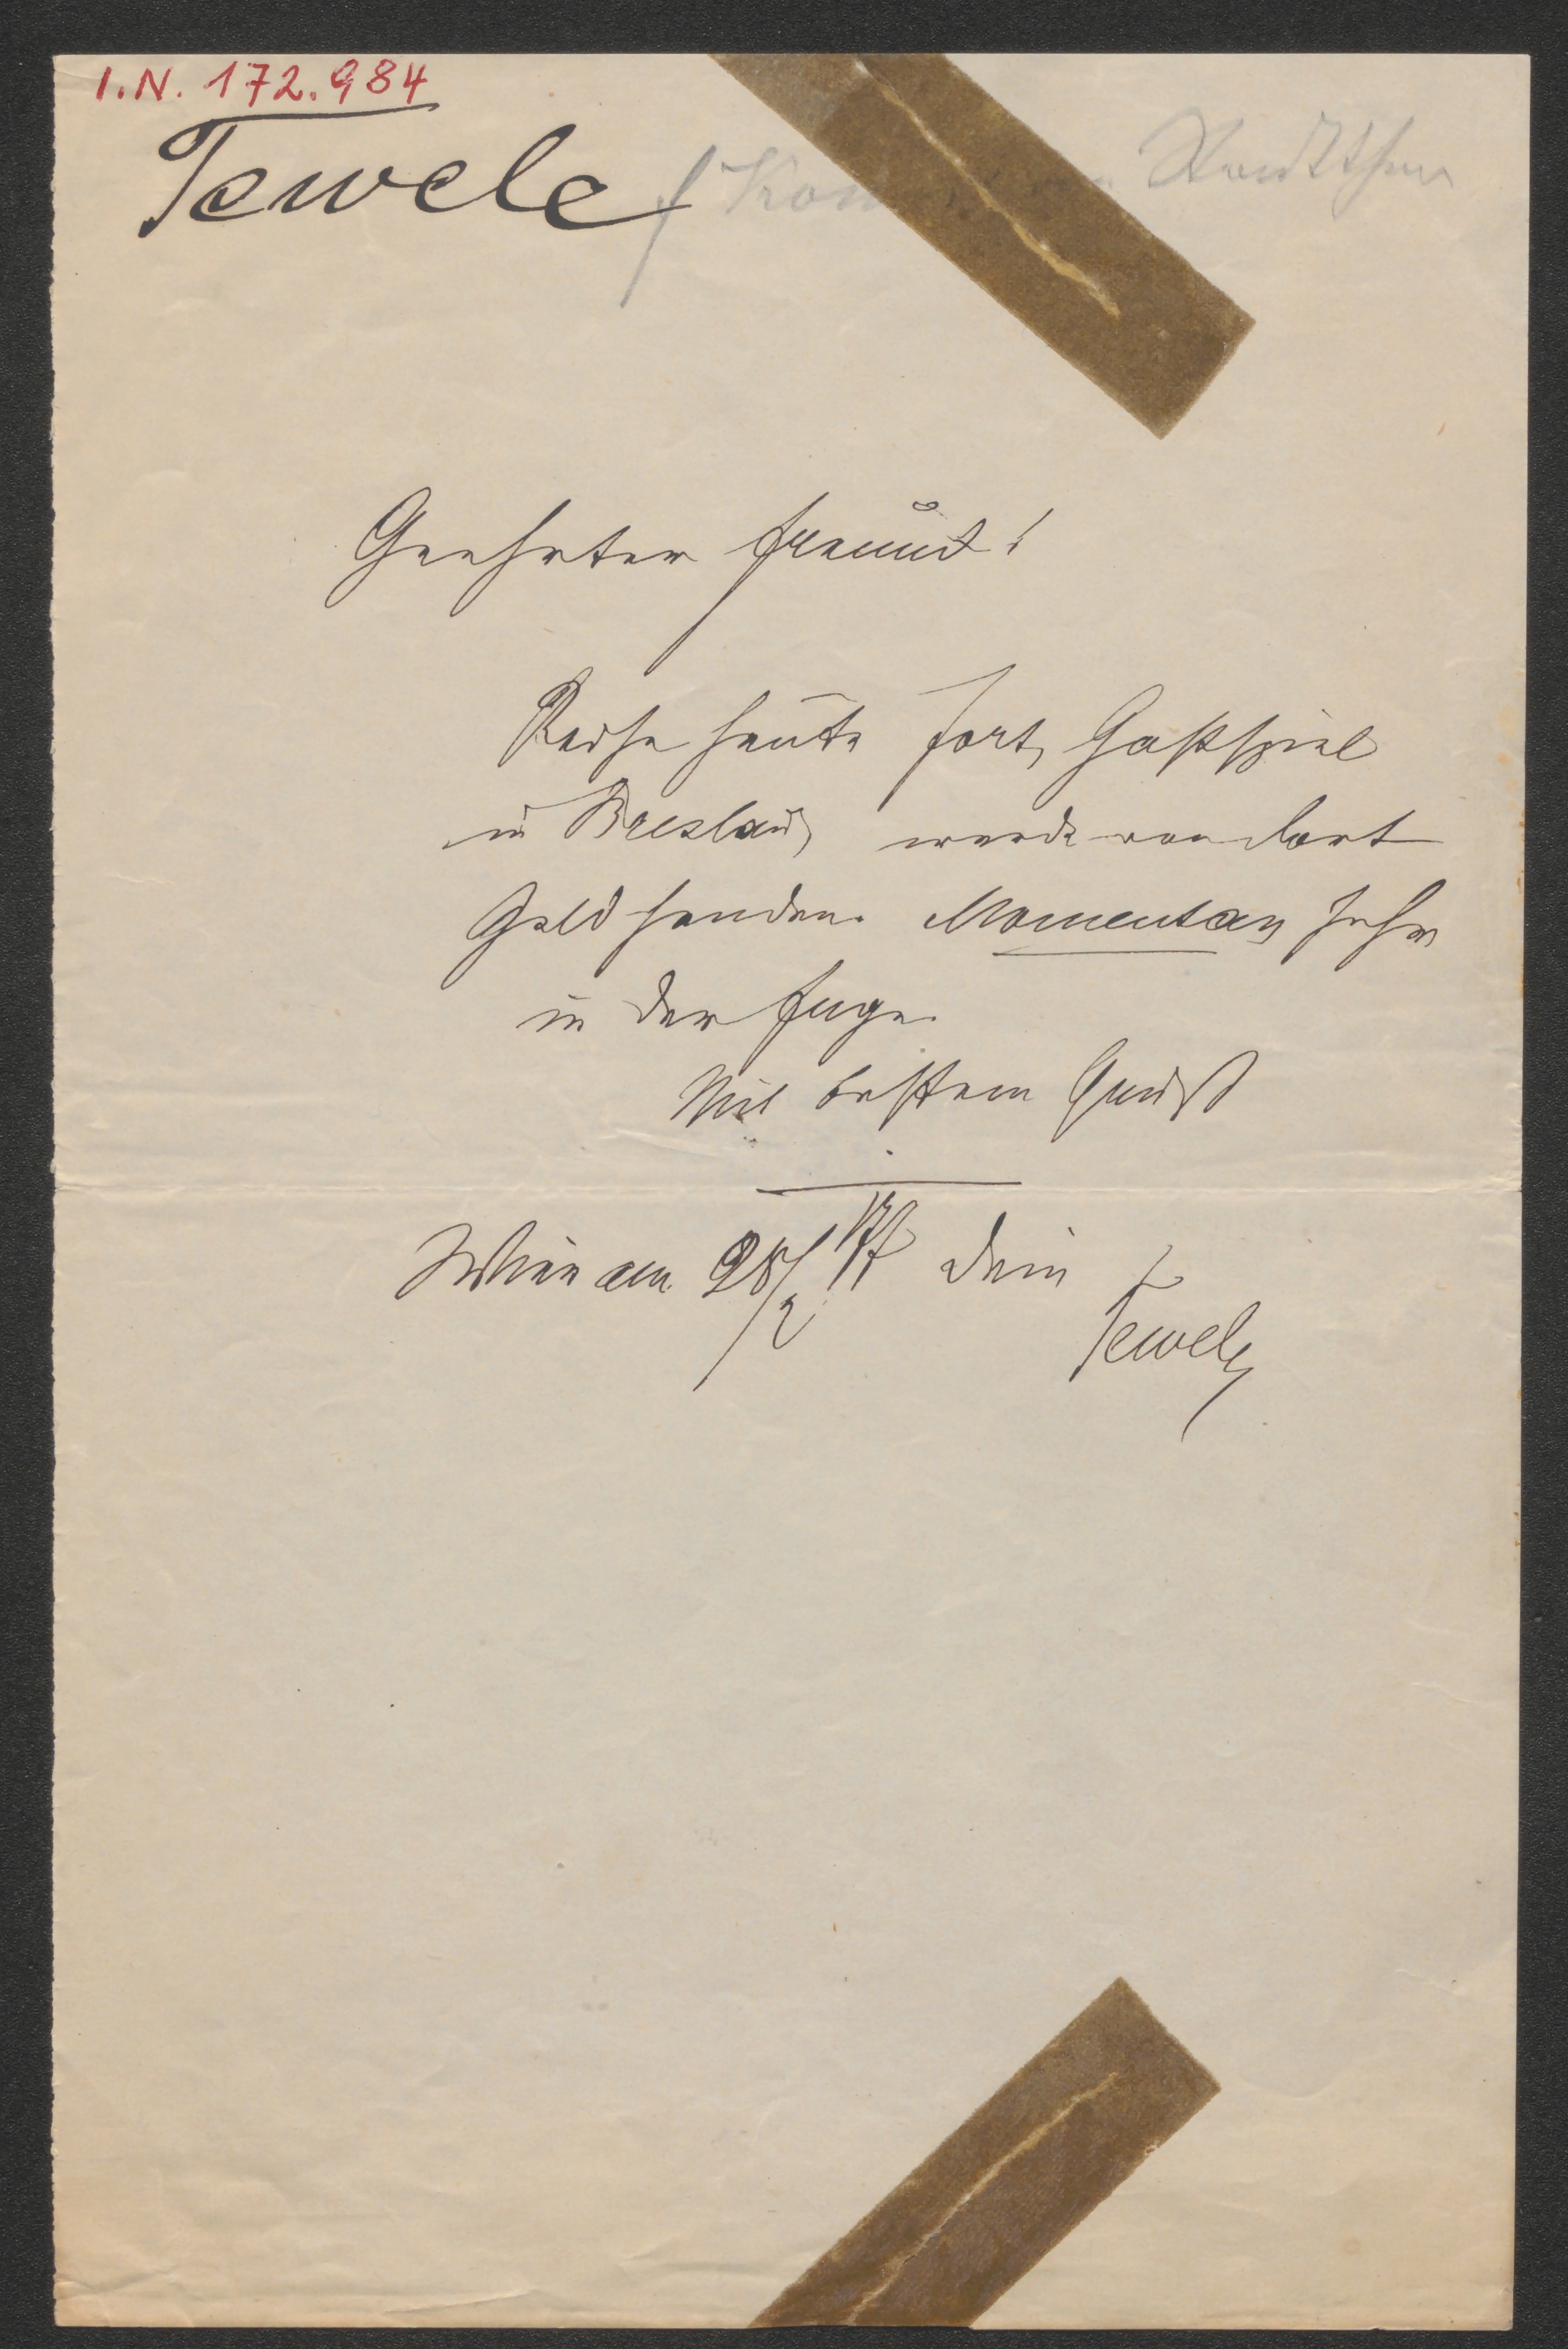 I.N. 172.984
Tewele
Geehrter Freund!
Reise heute fort, Gastspiel
in Breslau, werde von dort
Geld senden. Momentan sehr
in der Enge.
Mit bestem Gruß
Wien am 28/2 77 Dein
Tewele